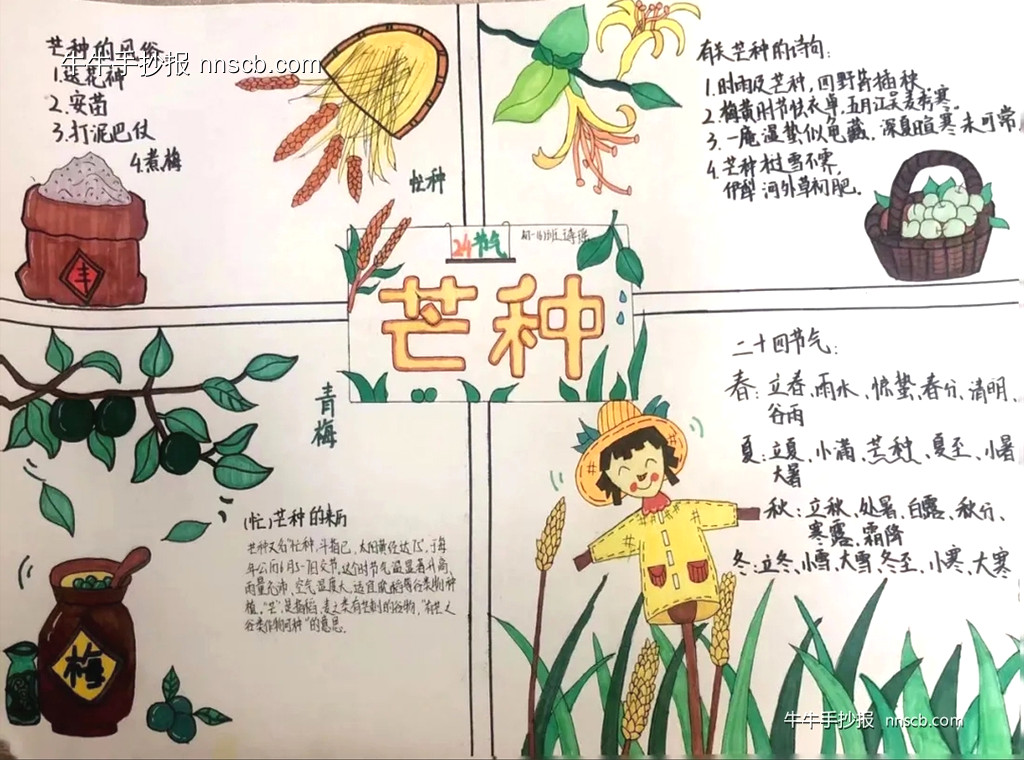 芒种的风俗
牛牛手抄报 nnscb.com
1.送花神
2.安苗
3.打泥巴仗
4.煮梅
忙种
丰
有关芒种的诗句:
1.时雨及芒种,四野皆插秧
2.梅黄时节怯衣单,五月江吴麦秀寒。
3.一庵湿蛰似龟藏,深夏暄寒未可常
4.芒种才过雪不霁,
伊犁河外草初肥。
24节气
芒种
青梅
(忙)芒种的来历
芒种又名"忙种,斗指巳,太阳黄经达75°,于每
年公历6月5-7日交节,这个时节气温显著升高、
雨量充沛、空气湿度大,适宜晚稻等谷类物种
植,"芒",是指稻、麦之类有芒刺的谷物,"有芒之
谷类作物可种"的意思.
梅
二十四节气:
春:立春、雨水、惊蛰、春分、清明、
谷雨
夏:立夏、小满、芒种、夏至、小暑
大暑
秋:立秋、处暑、白露、秋分、
寒露、霜降
冬:立冬、小雪、大雪、冬至、小寒、大寒
牛牛手抄报 nnscb.com